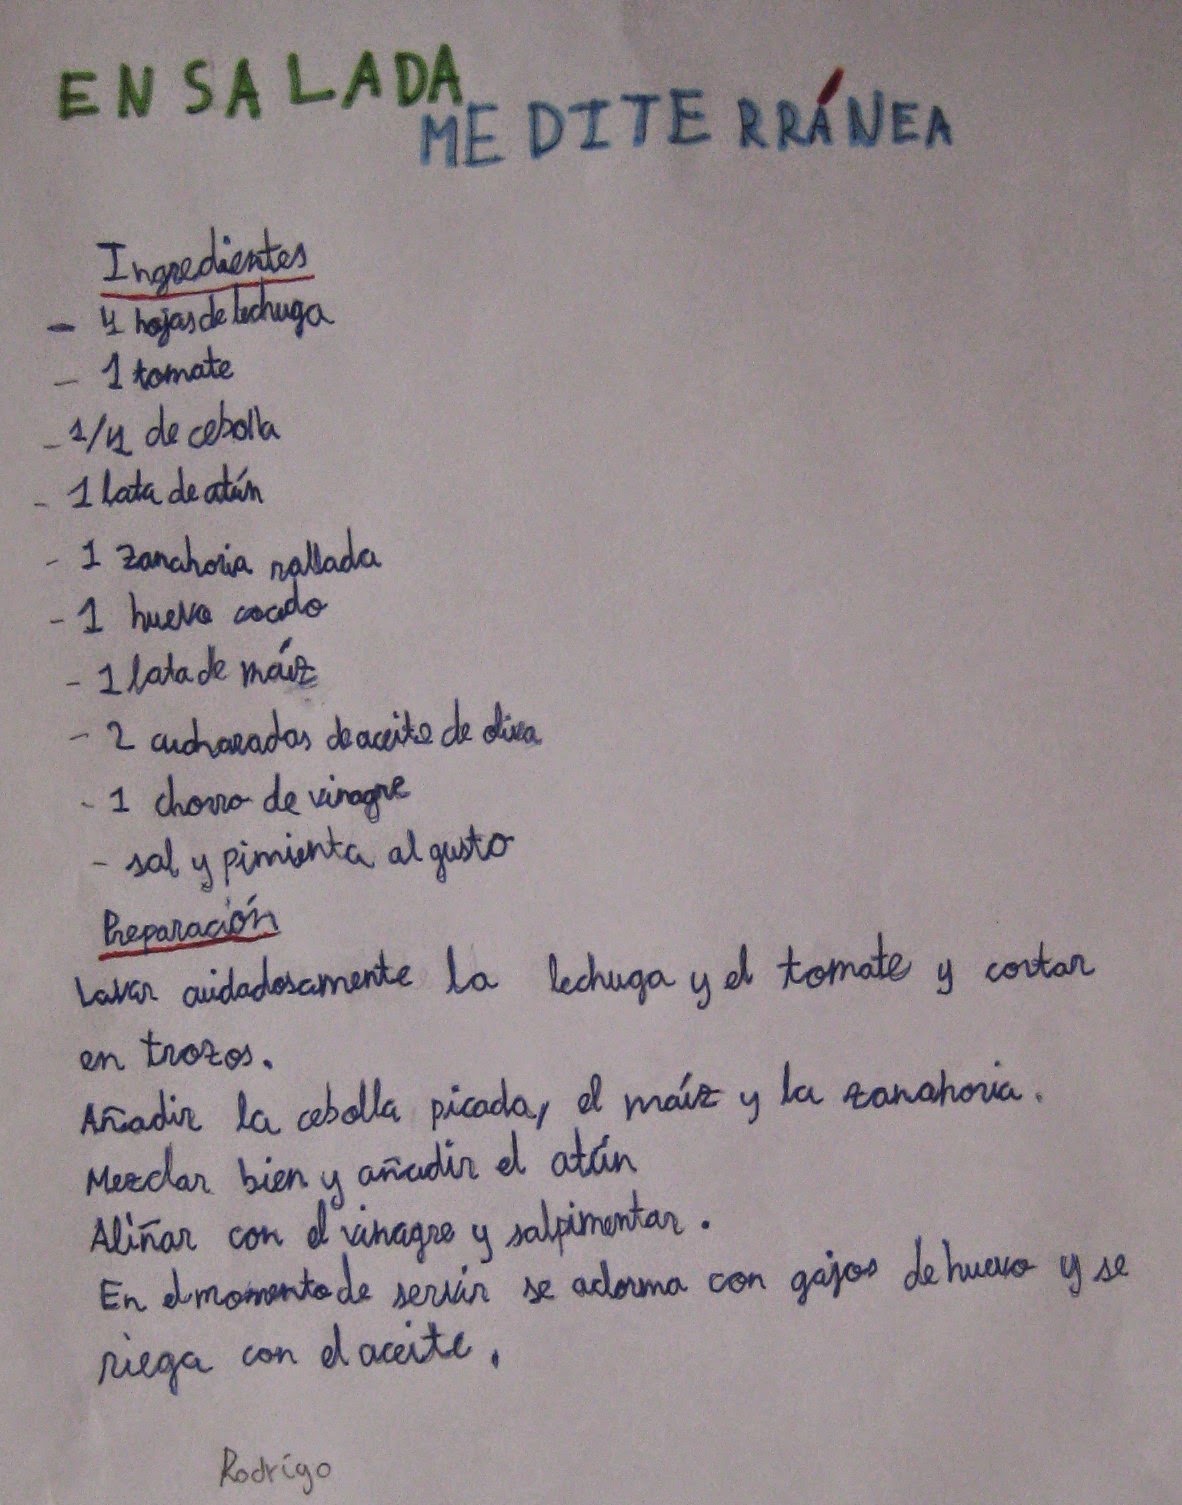 ENSALADA
MEDITERRÁNEA
Ingredientes
- 4 hojas de lechuga
- 1 tomate
- 1/4 de cebolla
- 1 lata de atún
- 1 zanahoria rallada
- 1 huevo cocido
- 1 lata de máiz
- 2 cucharadas de aceite de oliva
- 1 chorro de vinagre
- sal y pimienta al gusto
Preparación
Lavar cuidadosamente la lechuga y el tomate y cortar
en trozos.
Añadir la cebolla picada, el máiz y la zanahoria.
Mezclar bien y añadir el atún
Aliñar con el vinagre y salpimentar.
En el momento de servir se adorma con gajos de huevo y se
riega con el aceite.
Rodrigo